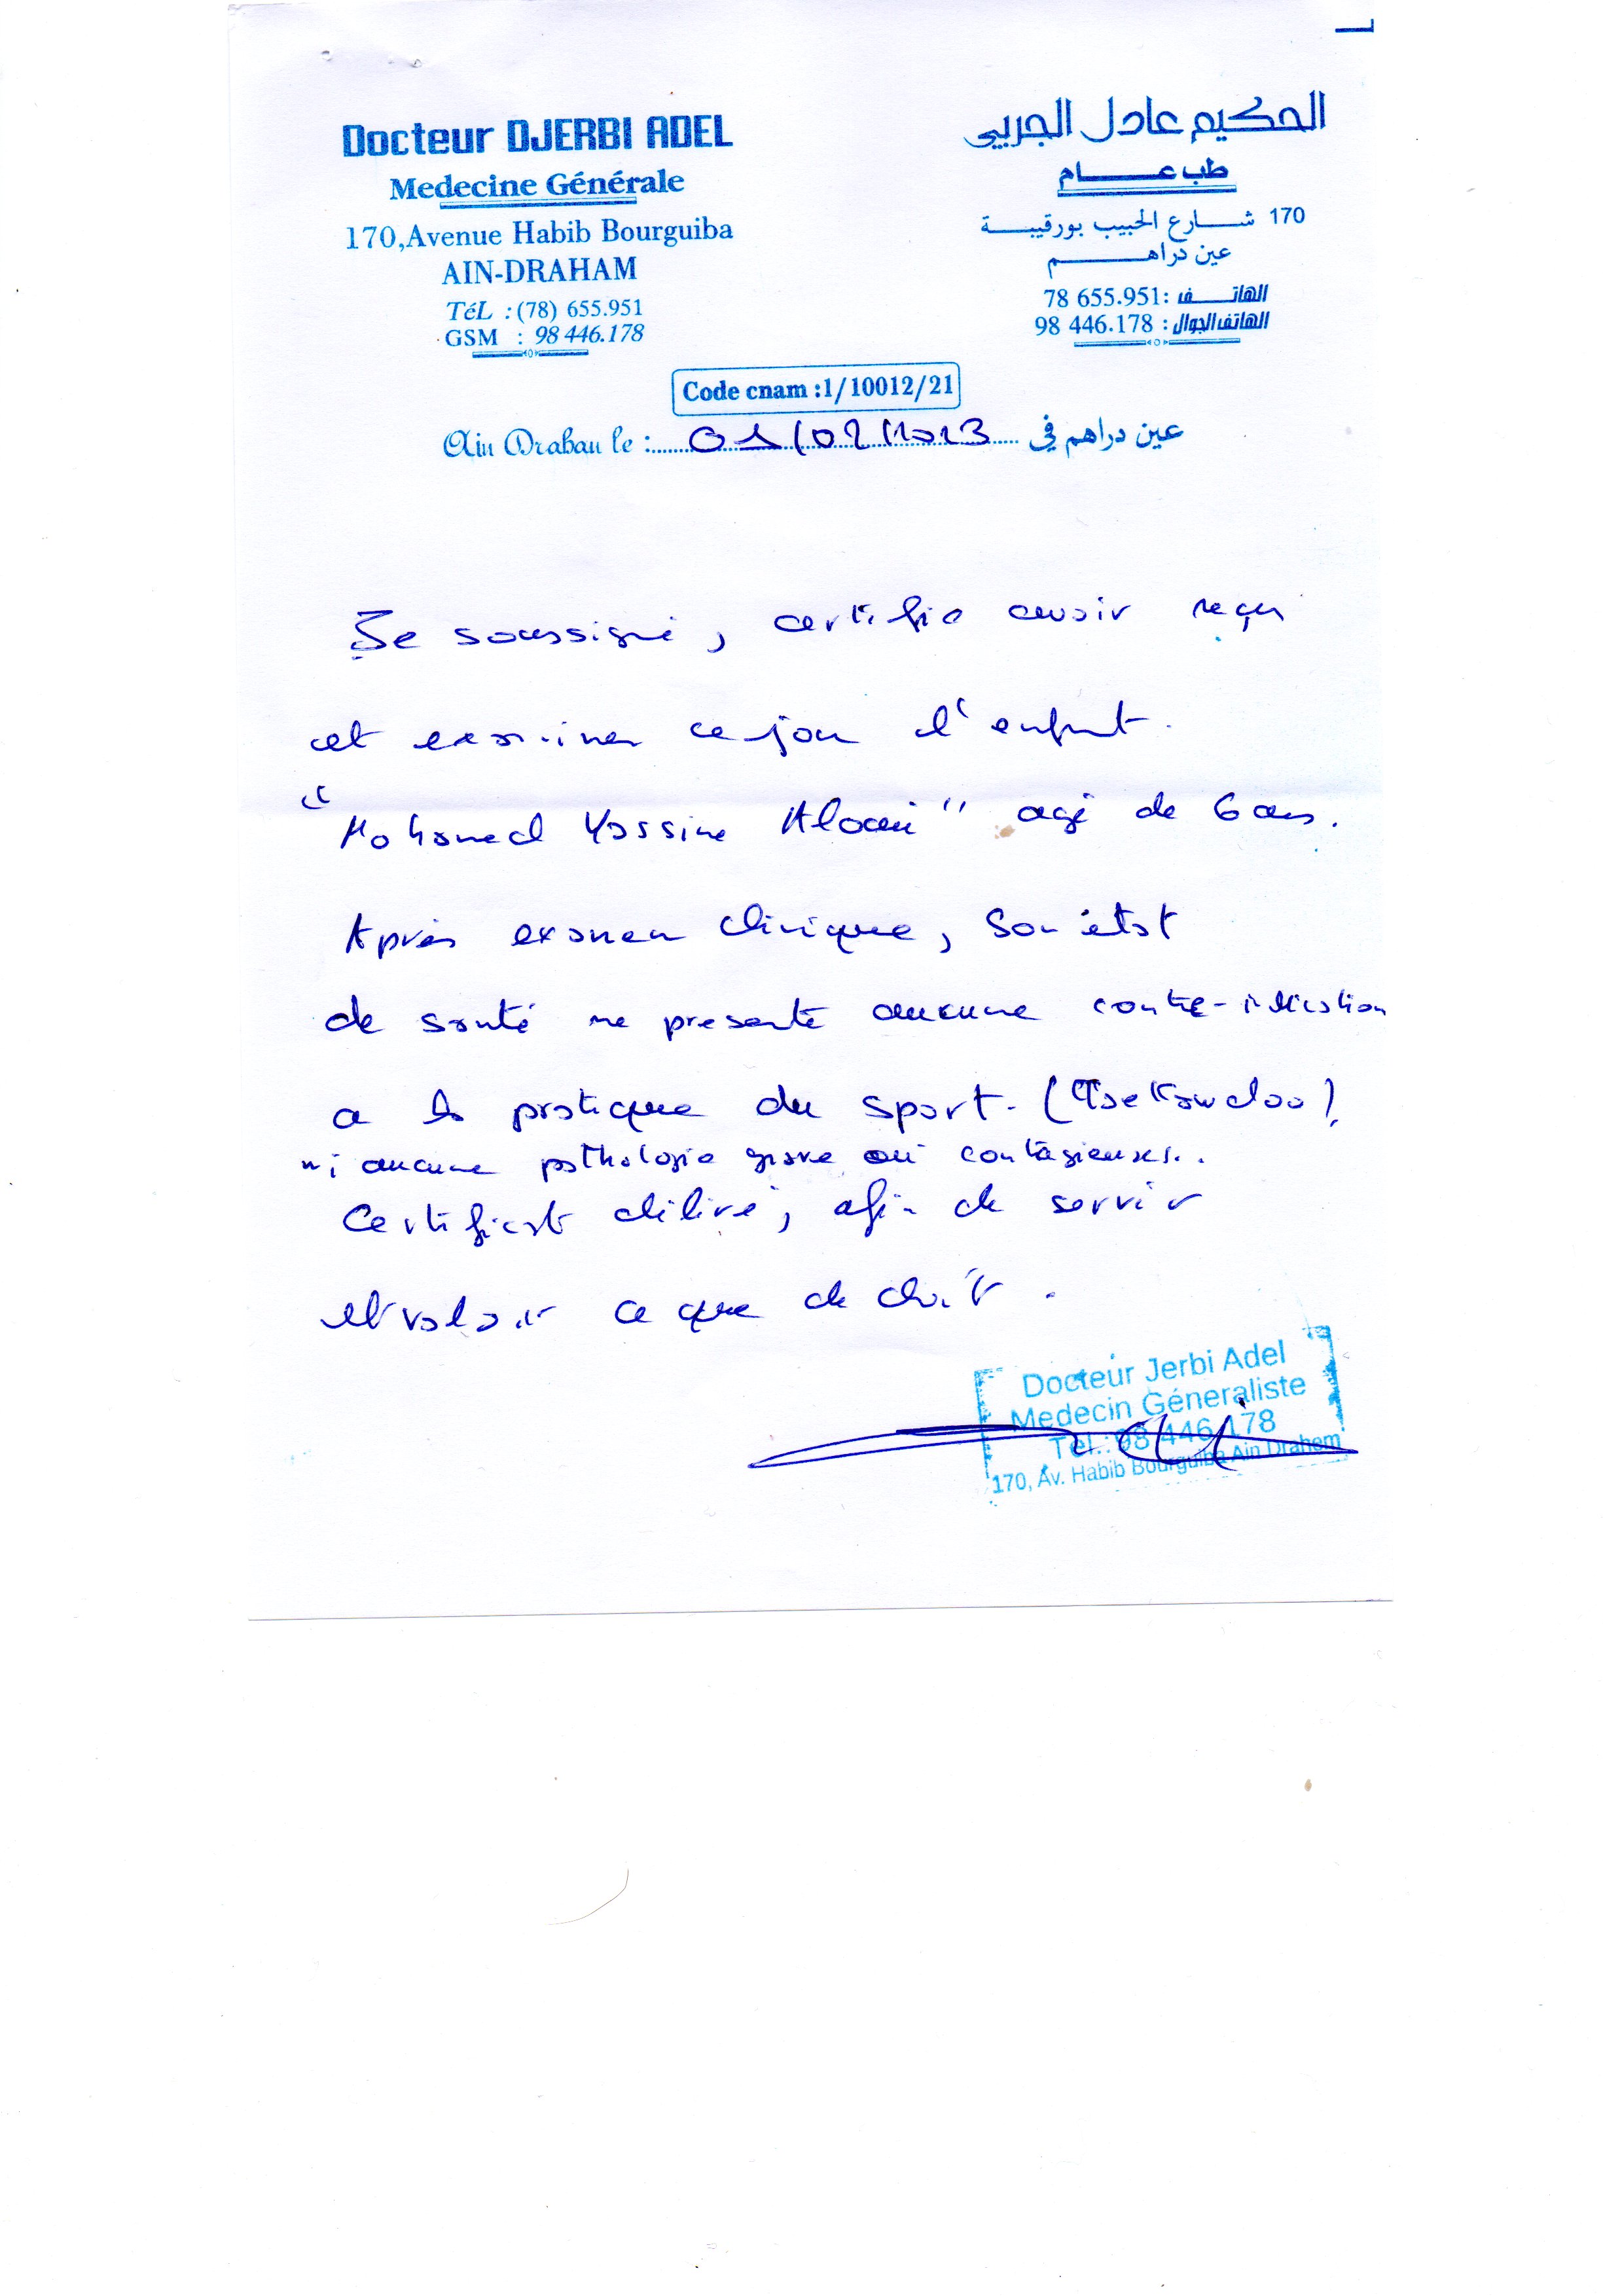 Docteur DJERBI ADEL
Medecine Générale
170,Avenue Habib Bourguiba
AIN-DRAHAM
TéL : (78) 655.951
GSM : 98 446.178
الحكيم عادل الجربي
طب عـــــام
170 شـــارع الحبيب بورقيبـــة
عين دراهـــــم
الهاتـــف :78 655.951
الهاتف الجوال : 98 446.178
Code cnam :1/10012/21
Ain Drahau le : 01/02/2023 عين دراهم في
Je soussigné, certifie avoir reçu
et examiner ce jour l'enfant.
"Mohamed Yassine" agé de 6 ans.
Après examen clinique, Son état
de santé ne presente aucune contre-indication
a la pratique du sport. (Taekowdoo)
ni aucune pathologie grave ou contagieuses..
Certificat délivré, afin de servir
et valoir ce que de droit.
Docteur Jerbi Adel
Medecin Géneraliste
Tel.: 98 446 178
170, Av. Habib Bourguiba Ain Drahem